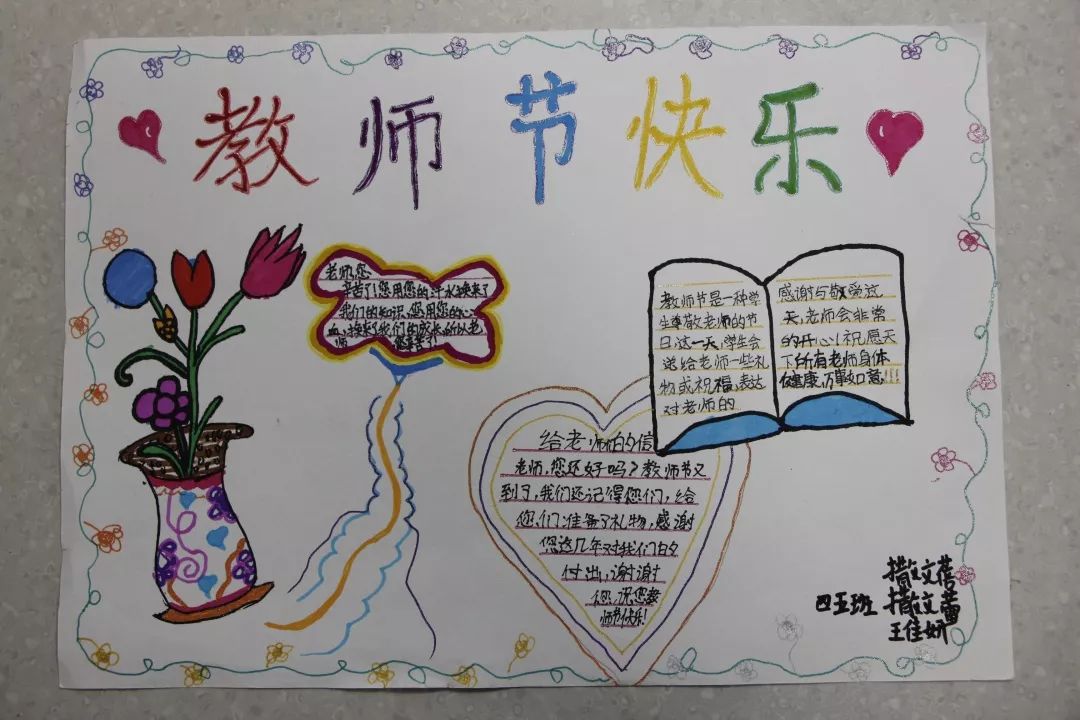 教师节快乐
老师,您
辛苦了!您用您的汗水换来了
我们的知识,您用您的心
血,换来了我们的成长,所以老
师 您辛苦了!
教师节是一种学
生尊敬老师的节
日,这一天,学生会
送给老师一些礼
物或祝福,表达
对老师的
感谢与敬爱,这
天,老师会非常
的开心!祝愿天
下所有老师身体
健康,万事如意!!!
给老师的信
老师,您还好吗?教师节又
到了,我们还记得您们,给
您们准备了礼物,感谢
您这几年对我们的
付出,谢谢
您,祝您教
师节快乐!
撒文蓓
四五班 撒文蕾
王佳妍